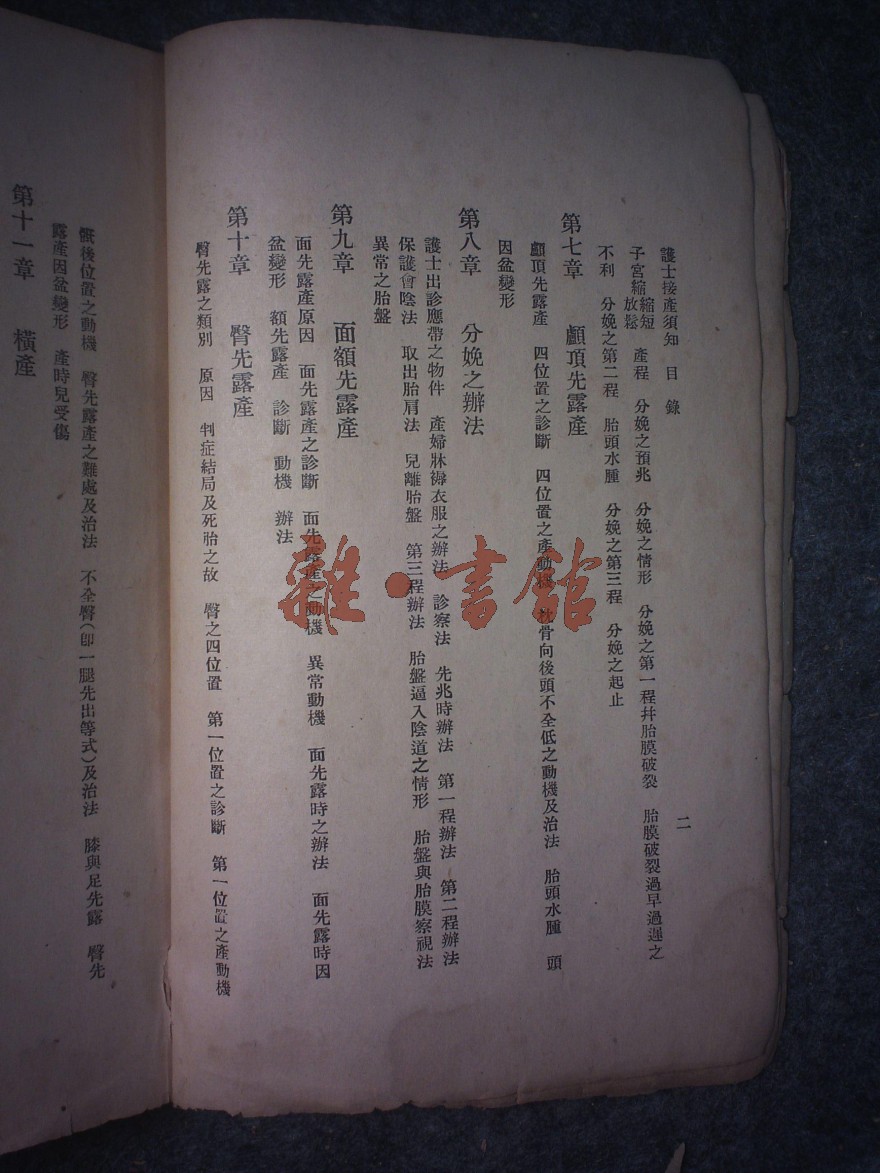 護士接產須知 目錄
二
子宮縮縮短放鬆 產程 分娩之預兆 分娩之情形 分娩之第一程幷胎膜破裂 胎膜破裂過早過遲之
不利 分娩之第二程 胎頭水腫 分娩之第三程 分娩之起止
第七章 顱頂先露產
顱頂先露產 四位置之診斷 四位置之產動機 枕骨向後頭不全低之動機及治法 胎頭水腫 頭
因盆變形
第八章 分娩之辦法
護士出診應帶之物件 產婦牀褥衣服之辦法 診察法 先兆時辦法 第一程辦法 第二程辦法
保護會陰法 取出胎肩法 兒離胎盤 第三程辦法 胎盤逼入陰道之情形 胎盤與胎膜察視法
異常之胎盤
第九章 面額先露產
面先露產原因 面先露產之診斷 面先露產之動機 異常動機 面先露時之辦法 面先露時因
盆變形 額先露產 診斷 動機 辦法
第十章 臀先露產
臀先露之類別 原因 判症結局及死胎之故 臀之四位置 第一位置之診斷 第一位置之產動機
骶後位置之動機 臀先露產之難處及治法 不全臀(卽一腿先出等式)及治法 膝與足先露 臀先
露產因盆變形 產時兒受傷
第十一章 橫產
雜·書館